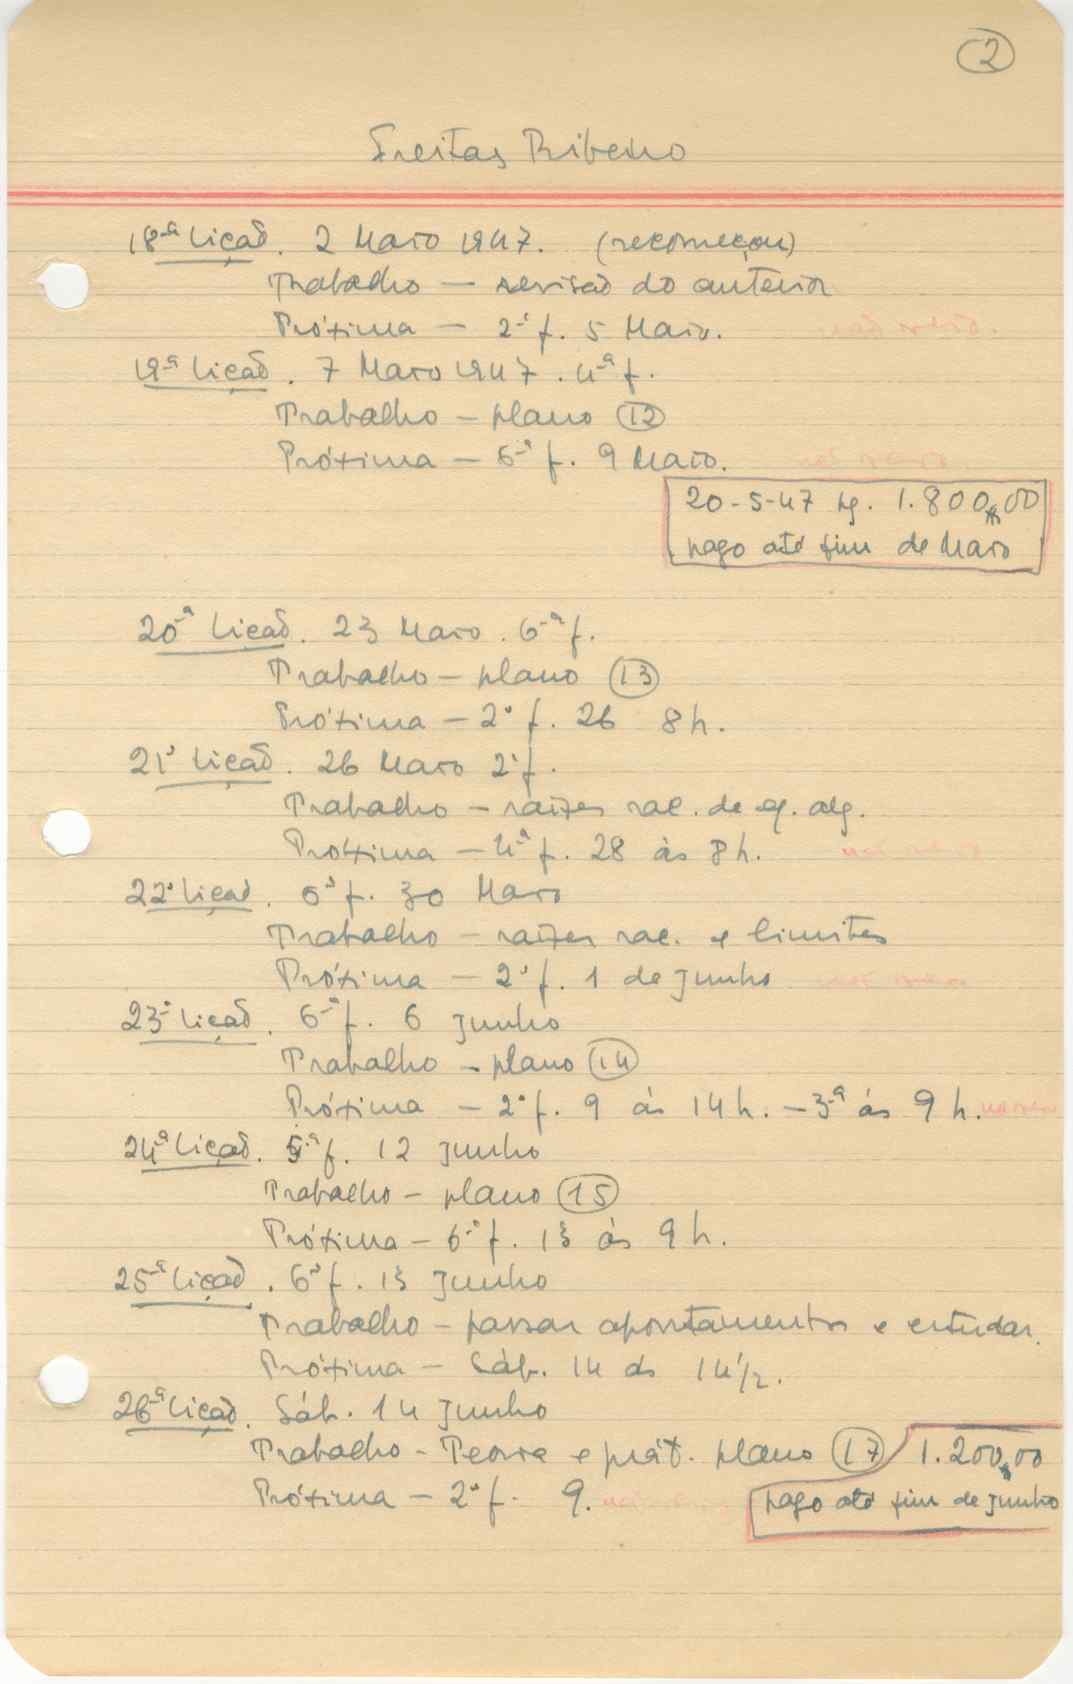 2
Freitas Ribeiro
18ª Lição. 2 Maio 1947. (recomeçou)
Trabalho — revisão do anterior
Próxima — 2ª f. 5 Maio. não veio.
19ª Lição. 7 Maio 1947. 4ª f.
Trabalho — plano 12
Próxima — 6ª f. 9 Maio. não veio.
20-5-47 pg. 1.800$00
pago até fim de Maio
20ª Lição. 23 Maio. 6ª f.
Trabalho — plano 13
Próxima — 2ª f. 26 8h.
21ª Lição. 26 Maio 2ª f.
Trabalho — raízes rac. de eq. alg.
Próxima — 4ª f. 28 às 8h. não veio
22ª Lição. 6ª f. 30 Maio
Trabalho — raízes rac. e limites
Próxima — 2ª f. 1 de Junho não veio
23ª Lição. 6ª f. 6 Junho
Trabalho — plano 14
Próxima — 2ª f. 9 ás 14h. — 3ª ás 9h.
24ª Lição. 5ª f. 12 Junho
Trabalho — plano 15
Próxima — 6ª f. 13 ás 9h.
25ª Lição. 6ª f. 13 Junho
Trabalho — passar apontamentos e estudar.
Próxima — Sáb. 14 ás 14 1/2.
26ª Lição. Sáb. 14 Junho
Trabalho - Teoria e prát. plano 17 1.200$00
Próxima — 2ª f. 9. pago até fim de Junho